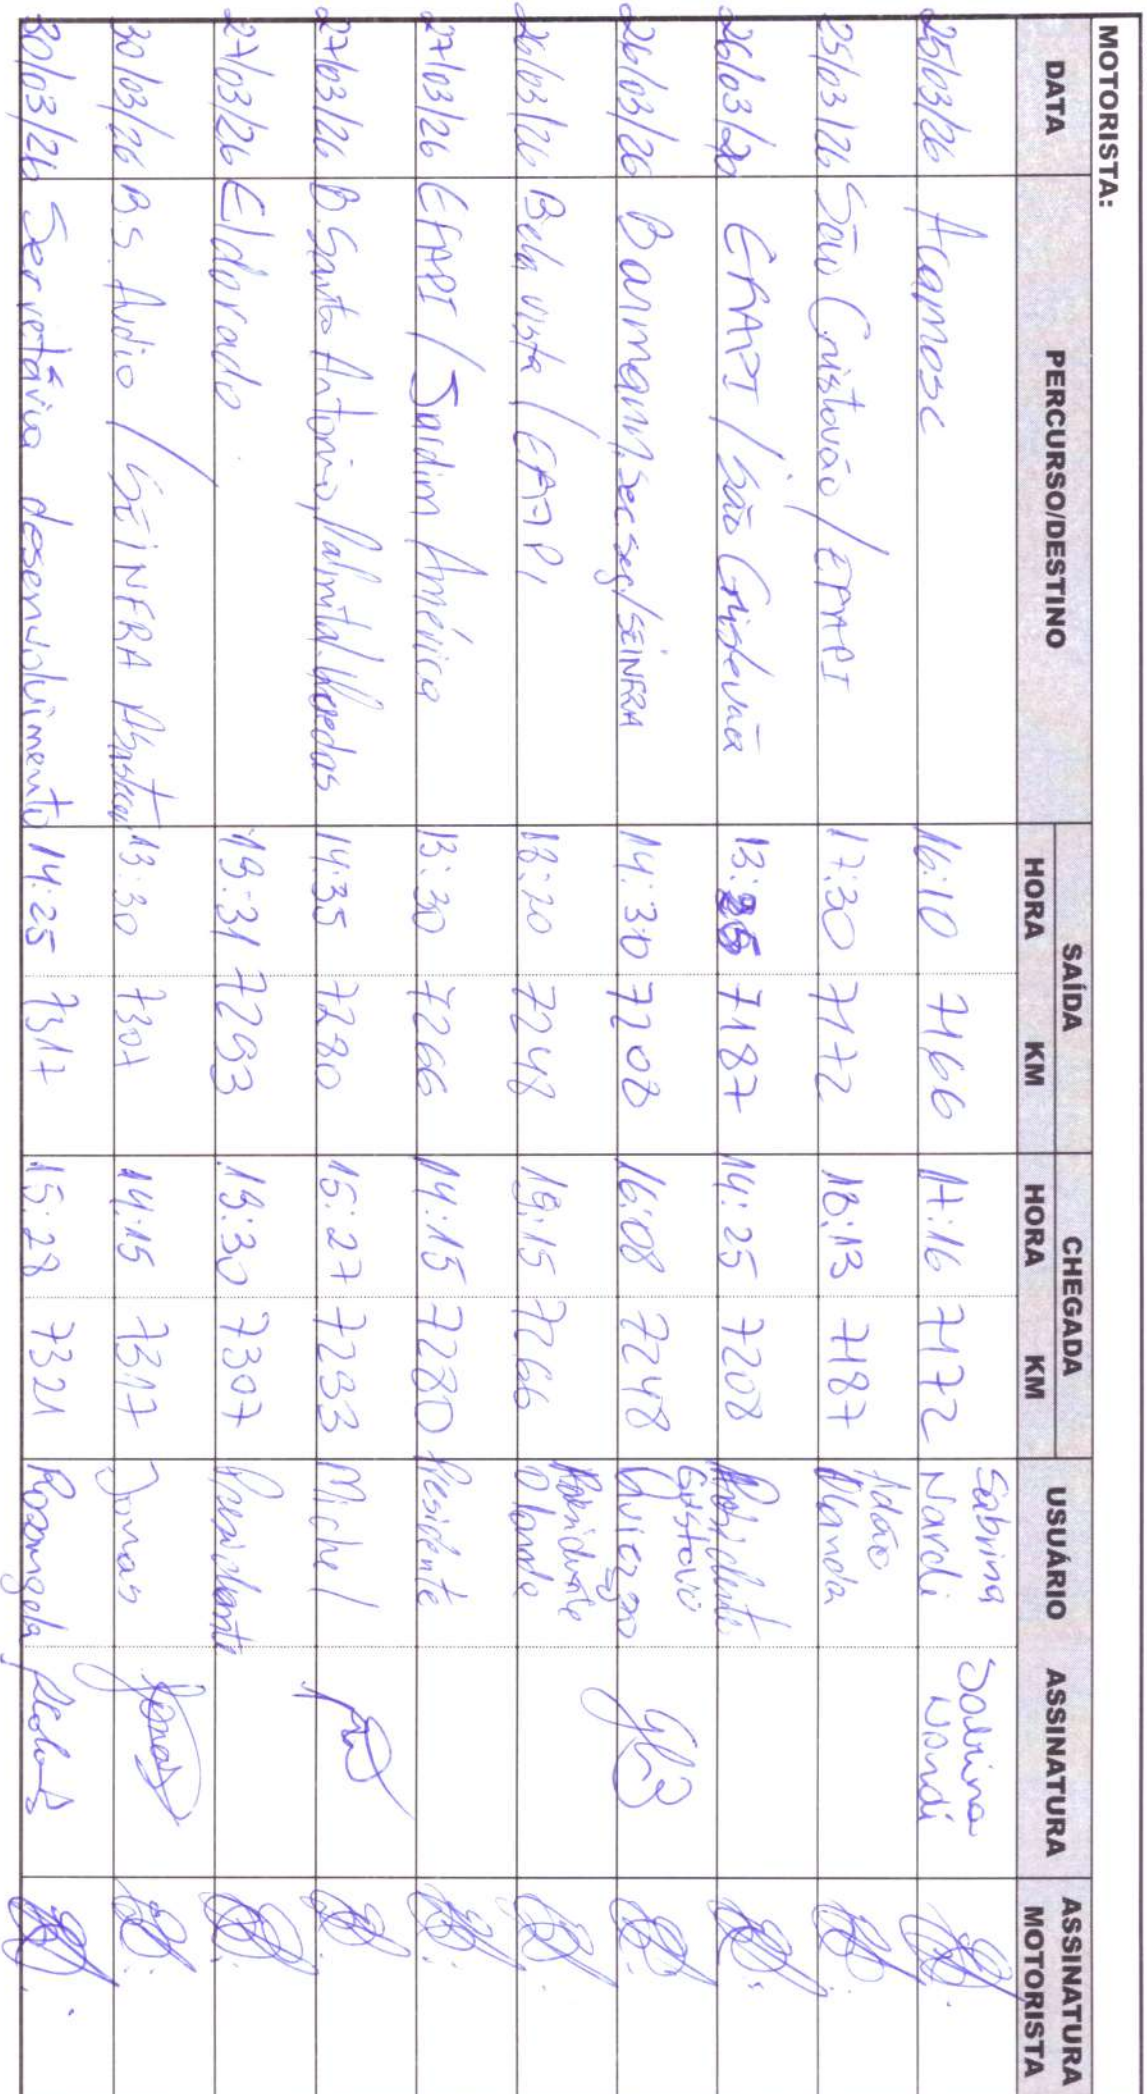 MOTORISTA:
DATA PERCURSO/DESTINO SAÍDA CHEGADA USUÁRIO ASSINATURA ASSINATURA MOTORISTA
HORA KM HORA KM
25/03/26 Acamosc 16:10 7166 17:16 7172 Sabrina Nardi Sabrina Nardi
25/03/26 São Cristovão / EFAPI 17:30 7172 18:13 7187 Adão
26/03/26 EFAPI / São Cristovão 13:25 7187 14:25 7208 Presidente
26/03/26 Sec. seg/SEINFRA 14:30 7208 16:08 7248
26/03/26 Bela Vista / EFAPI 18:20 7248 19:15 7266 Presidente
27/03/26 EFAPI / Jardim América 13:30 7266 14:15 7280 Presidente
27/03/26 B. Santo Antonio, Palmital. Veredas 14:35 7280 15:27 7293 Michel
27/03/26 Eldorado 7293 19:30 7307 Presidente
30/03/26 B.S. Audio / SEINFRA 13:30 7307 14:15 7317 Jonas Jonas
30/03/26 Secretária desenvolvimento 14:25 7317 15:28 7321 Rosangela